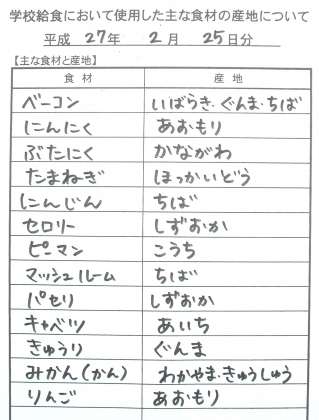 学校給食において使用した主な食材の産地について
平成 27年 2月 25日分
【主な食材と産地】
食材 産地
ベーコン いばらき・ぐんま・ちば
にんにく あおもり
ぶたにく かながわ
たまねぎ ほっかいどう
にんじん ちば
セロリー しずおか
ピーマン こうち
マッシュルーム ちば
パセリ しずおか
キャベツ あいち
きゅうり ぐんま
みかん(かん) わかやま・きゅうしゅう
りんご あおもり